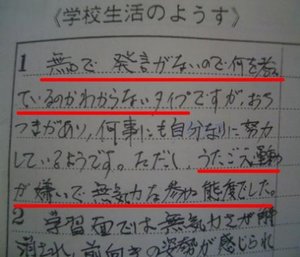 《学校生活のようす》
1 無口で 発言がないので何を考え
ているのかわからないタイプですが、おち
つきがあり、何事にも自分なりに努力
しているようです。ただし、うたごえ運動
が嫌いで無気力な態度でした。
2 学習面では無気力さが解
消され、前向きの姿勢が感じられ